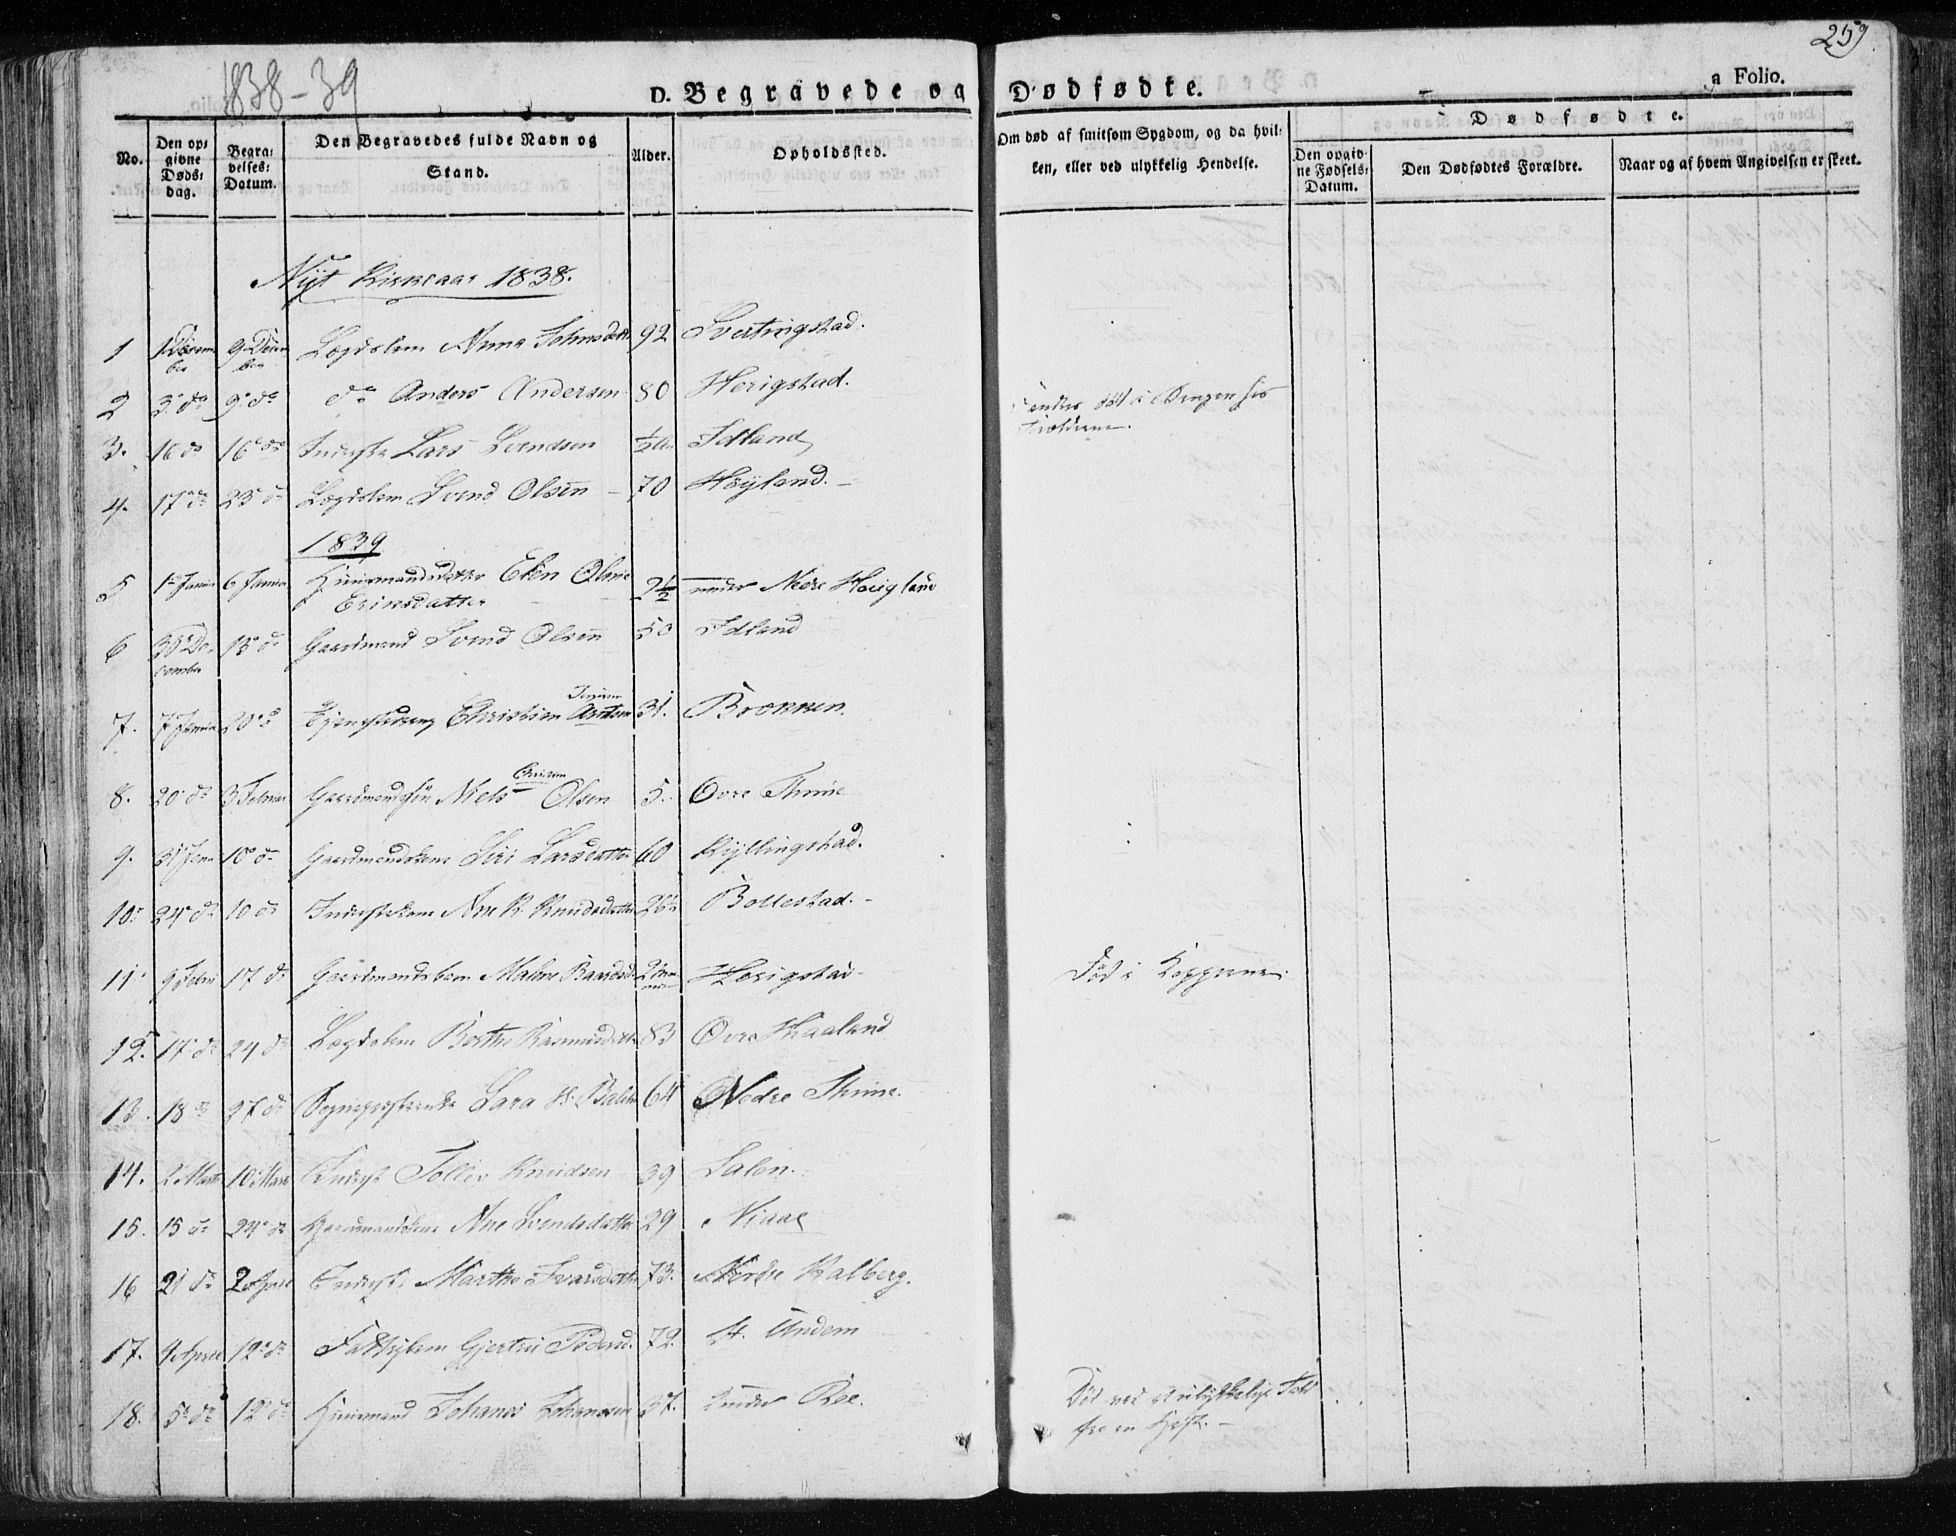 259.
1838-39
D. Begravede og Dødfødte.
a Folio.
No.
Den opgivne Dødsdag.
Begravelses-Datum.
Den Begravedes fulde Navn og Stand.
Alder.
Opholdssted.
Om død af smitsom Sygdom, og da hvilken, eller ved ulykkelig Hendelse.
Dødfødte.
Den opgivne Fødsels-Datum.
Den Dødfødtes Forældre.
Naar og af hvem Angivelsen er skeet.
Nyt Kirkeaar 1838.
1 1 December 9 December Lægdslem Anna Johnsdatter 92 Svertingstad.
2 3 do 9 do do Anders Andersen 80 Herigstad. død i Sengen hos Forældrene.
3. 16 do 16 do Inderste Lars Svendsen Idland
4. 17 do 23 do Lægdslem Svend Olsen 70 Høyland.
1839
5 1 Januar 6 Januar Huusmandsdatter Elen Oline Erinsdatter 2½ under Nedre Høigland
6 30 December 13 do Gaardmand Svend Olsen 50 Idland
7. 7 Januar 20 do Christian Arntsen 31. Brokken.
8. 20 do 3 Februar Gaardmandssøn Niels Olsen 5. Øvre Thime
9. 31 Janu 10 do Gaardmandskone Siri Larsdatter 60 Kyllingstad.
10. 24 do 10 do Inderstekone Ane K. Knudsdatter 26 Bollestad.
11. 9 Febru 17 do Gaardmandsbarn Malene Baardsd. 2 Herigstad Død i Kopperne.
12. 17 do 24 do Lægdslem Berthe Rasmusdatter 83 Øvre Haaland
13. 18 do 27 do Sognepræst Lars 64 Nedre Thime.
14. 2 Marts 10 Marts Inderst Tollev Knudsen 39 Salen.
15. 15 do 24 do Gaardmandskone Ane Svendsdatter 29 Niaae
16 21 do 2 April Inderst Marthe Ivarsdatter 73. Nerdre Kalberg.
17. 4 April 12 do Fattiglem Gjertru Pedersd. 72 St. Undem
18. 5 do 12 do Huusmand Johanes Johanesen 37. under Ree. Død ved et ulykkeligt Fald fra en Hest.